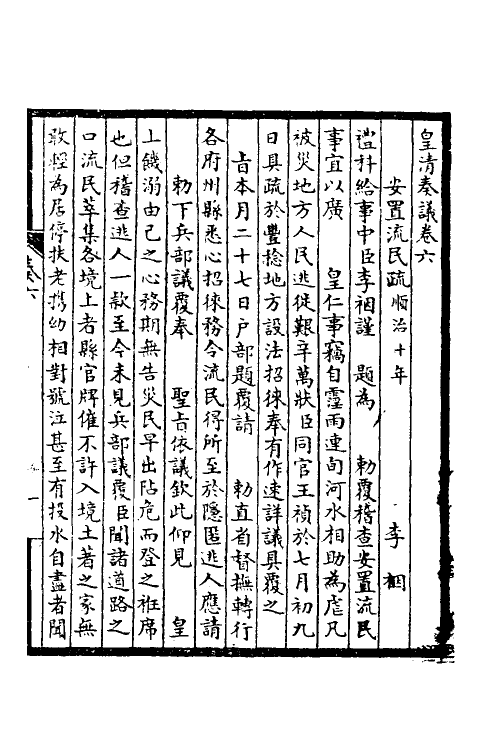 皇清奏議卷六
安置流民疏順治十年 李裀
禮科給事中臣李裀謹 題為 勅覆稽查安置流民
事宜以廣 皇仁事竊自霪雨連旬河水相助為虐凡
被災地方人民逃徙艱辛萬狀臣同官王禎於七月初九
日具疏於豐稔地方設法招徠奉有作速詳議具覆之
旨本月二十七日戶部題覆請 勅直省督撫轉行
各府州縣悉心招徠務令流民得所至於隱匿逃人應請
勅下兵部議覆奉 聖旨依議欽此仰見 皇
上饑溺由己之心務期無告災民早出阽危而登之袵席
也但稽查逃人一款至今未見兵部議覆臣聞諸道路之
口流民萃集各境上者縣官牌催不許入境土著之家無
敢輕為居停扶老携幼相對號泣甚至有投水自盡者聞
卷六
一